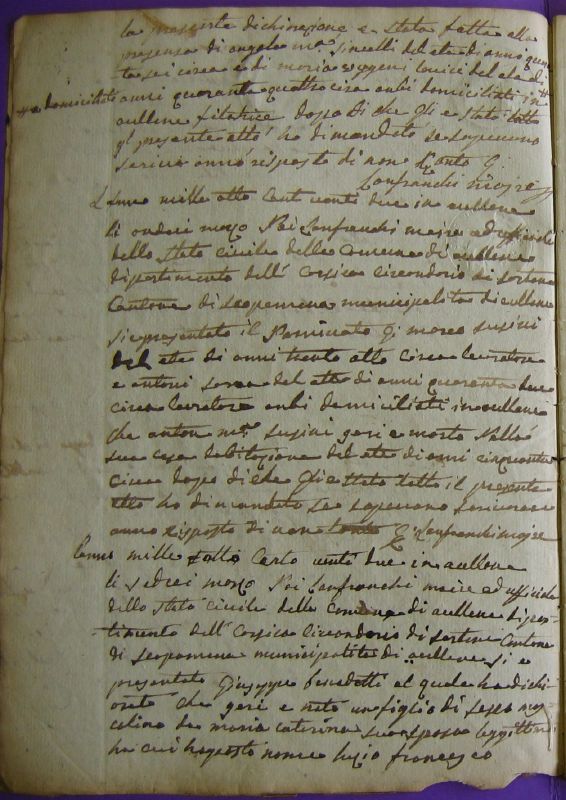 la presente dichirazione e stata fatta alla
presenza di angelo ma. sinelli del eta di anni quaran
ta sei circa e di maria del eta di #
# e domiciliati anni quaranta quattro circa anbi domiciliati in
aullene filatrice dopo di che gli e stato letto
il presente atto ho dimandato se sapevano
scrivere anno risposto di non
Lanfranchi maire
L'anno mille otto Cento venti due in aullene
li ondeci marzo Noi Lanfranchi maire ed uffiziale
dello stato Civile della Comuna di aullene
dipartimento dell' Corsica Circondario di Sartena
Cantone di scopamena municipalita di aullene
si e presentato il Nominato marco susini
del eta di anni trenta otto circa lavratore
e antoni del eta di anni quaranta due
circa lavratore anbi domiciliati in aullene
che anton ma. susini geri e morto Nella
sua casa dabitazione del eta di anni cinquanta
circa dopo di che gli e stato letto il presente
atto ho dimandato se sapevano scrivere
anno risposto di non Lanfranchi maire
Lanno mille otto Cento venti due in aullene
li sedeci marzo Noi Lanfranchi maire ed uffiziale
dello stato Civile della Comuna di aullene dipar-
-timento dell' Corsica Circondario di Sartene Cantone
di scopamena municipalita di aullene si e
presentato Giuseppe benedetti al quale ha dichi-
arato che geri e nato un figlio di sesso mas
colino da maria caterina sua sposa legittima
ha cui ha posto nome francesco